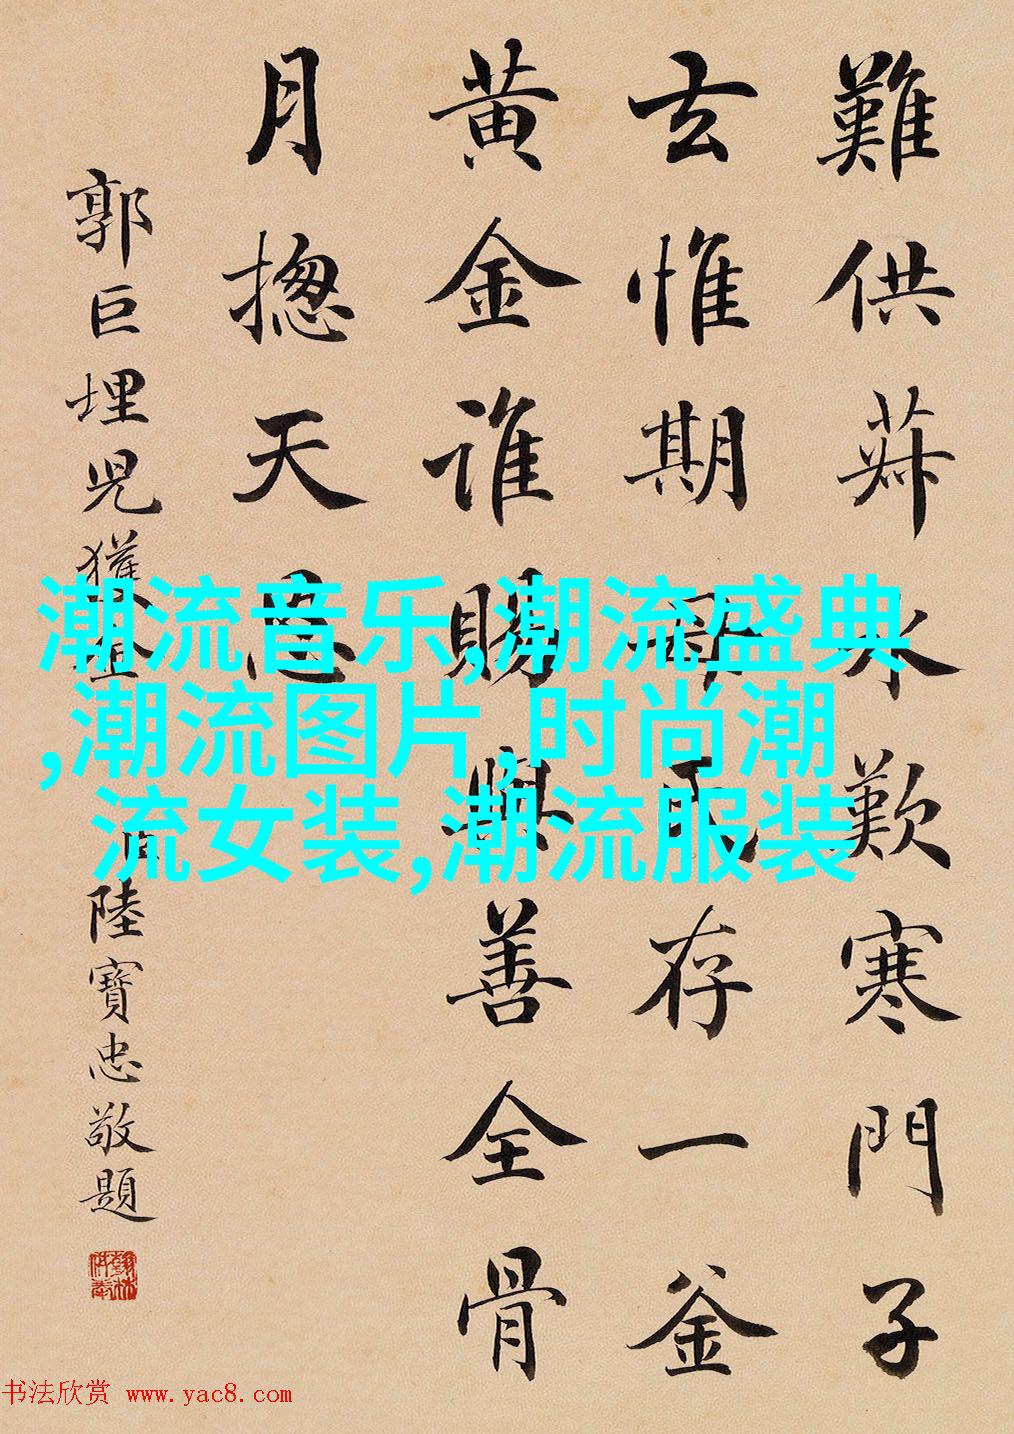 難供菽水歎寒門子
玄惟期存一釜
黄金谁賜與善全骨
月揔天恩
郭巨埋児獲金 臣陸寶忠敬題
潮流音乐,潮流盛典
,潮流图片,时尚潮
流女装,潮流服装
书法欣赏 www.yac8.com